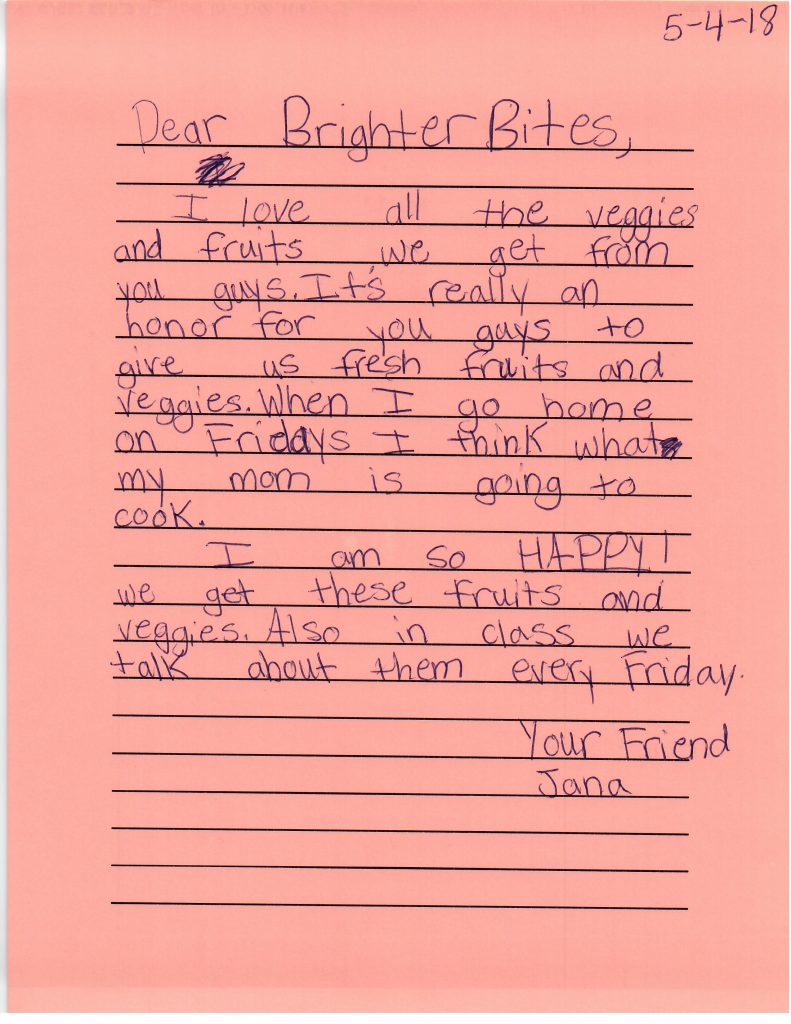 5-4-18
Dear Brighter Bites,
I love all the veggies
and fruits we get from
you guys. It's really an
honor for you guys to
give us fresh fruits and
veggies. When I go home
on Fridays I think what
my mom is going to
cook.
I am so HAPPY!
we get these fruits and
veggies. Also in class we
talk about them every Friday.
Your Friend
Jana